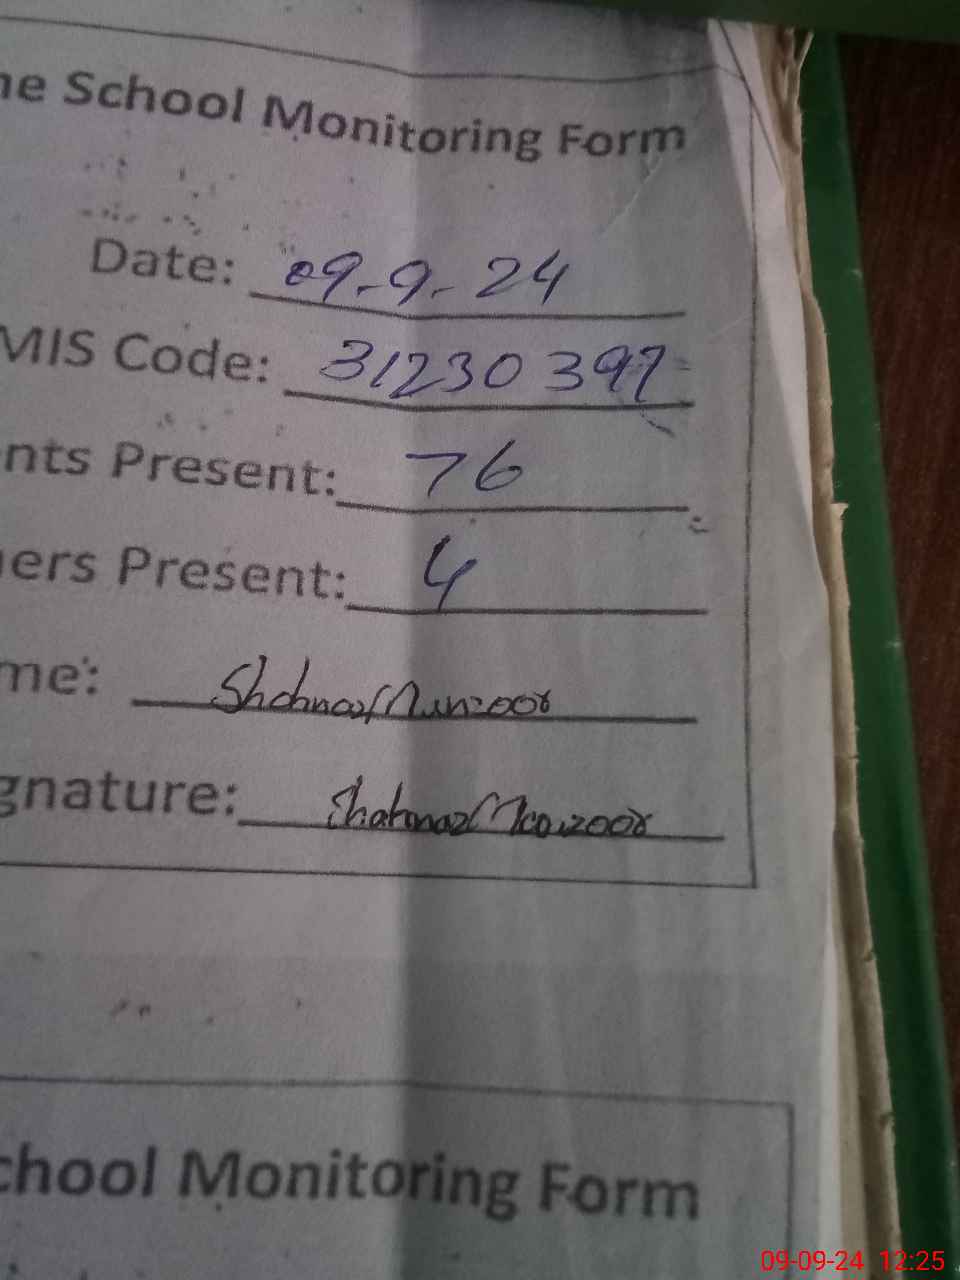 ne School Monitoring Form
Date: 09-9-24
MIS Code: 31230397
nts Present: 76
ners Present: 4
me: Shahnaz Manzoor
gnature: Shahnaz Manzoor
chool Monitoring Form
09-09-24 12:25